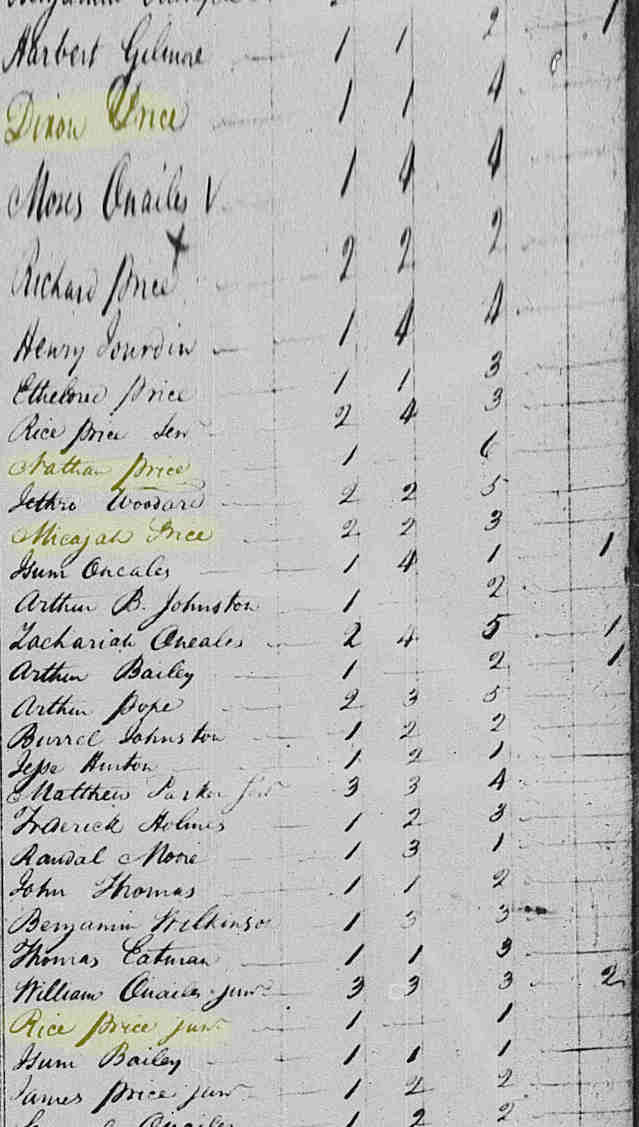 Harbert Gilmore 1 1 2 1
Dixon Price 1 1 4
Moses Onailes V 1 4 4
Richard Price x 2 2 2
Henry Jourdin 1 4 4
Ethelred Price 1 1 3
Rice Price Senr 2 4 3
Nathan Price 1 6
Jethro Woodard 2 2 5
Micajah Price 2 2 3
Isum Oneales 1 4 1 1
Arthur B. Johnston 1 2
Zachariah Oneales 2 4 5 1
Arthur Bailey 1 2 1
Arthur Pope 2 3 5
Burrel Johnston 1 2 2
Jesse Hinton 1 2 1
Matthew Parker 3 3 4
Frderick Holmes 1 2 3
Randal Moore 1 3 1
John Thomas 1 1 2
Benjamin Wilkinson 1 3 3
Thomas Eatman 1 1 3
William Onailes junr 3 3 3 2
Rice Price junr 1 1
Isum Bailey 1 1 1
James Price junr 1 2 2
Onailes 1 2 2